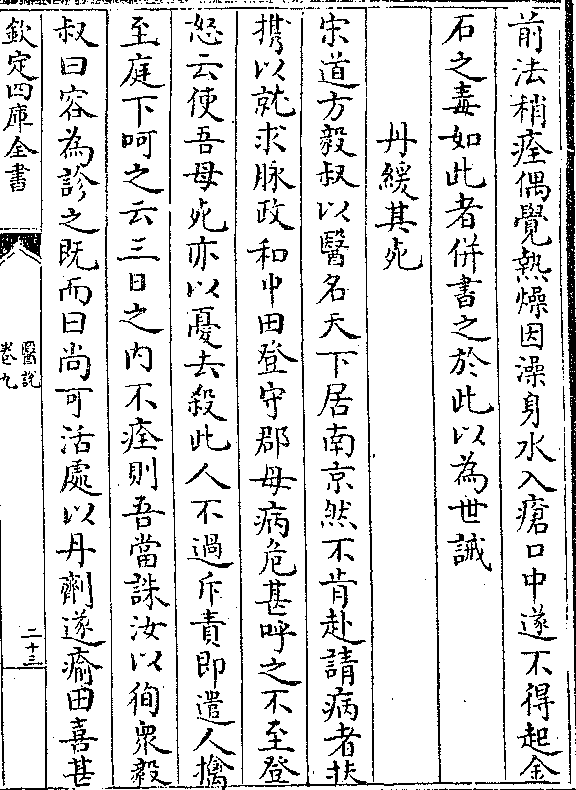 前法稍痊偶覺熱燥因澡身水入瘡口中遂不得起金
石之毒如此者併書之於此以為世誡
丹緩其死
宋道方毅叔以醫名天下居南京然不肯赴請病者扶
攜以就求脉政和中田登守郡母病危甚呼之不至登
怒云使吾母死亦以憂去殺此人不過斥責即遣人擒
至庭下呵之云三日之内不痊則吾當誅汝以徇衆毅
叔曰容為診之既而曰尚可活處以丹劑遂瘉田喜甚
欽定四庫全書
醫說
卷九
二十三